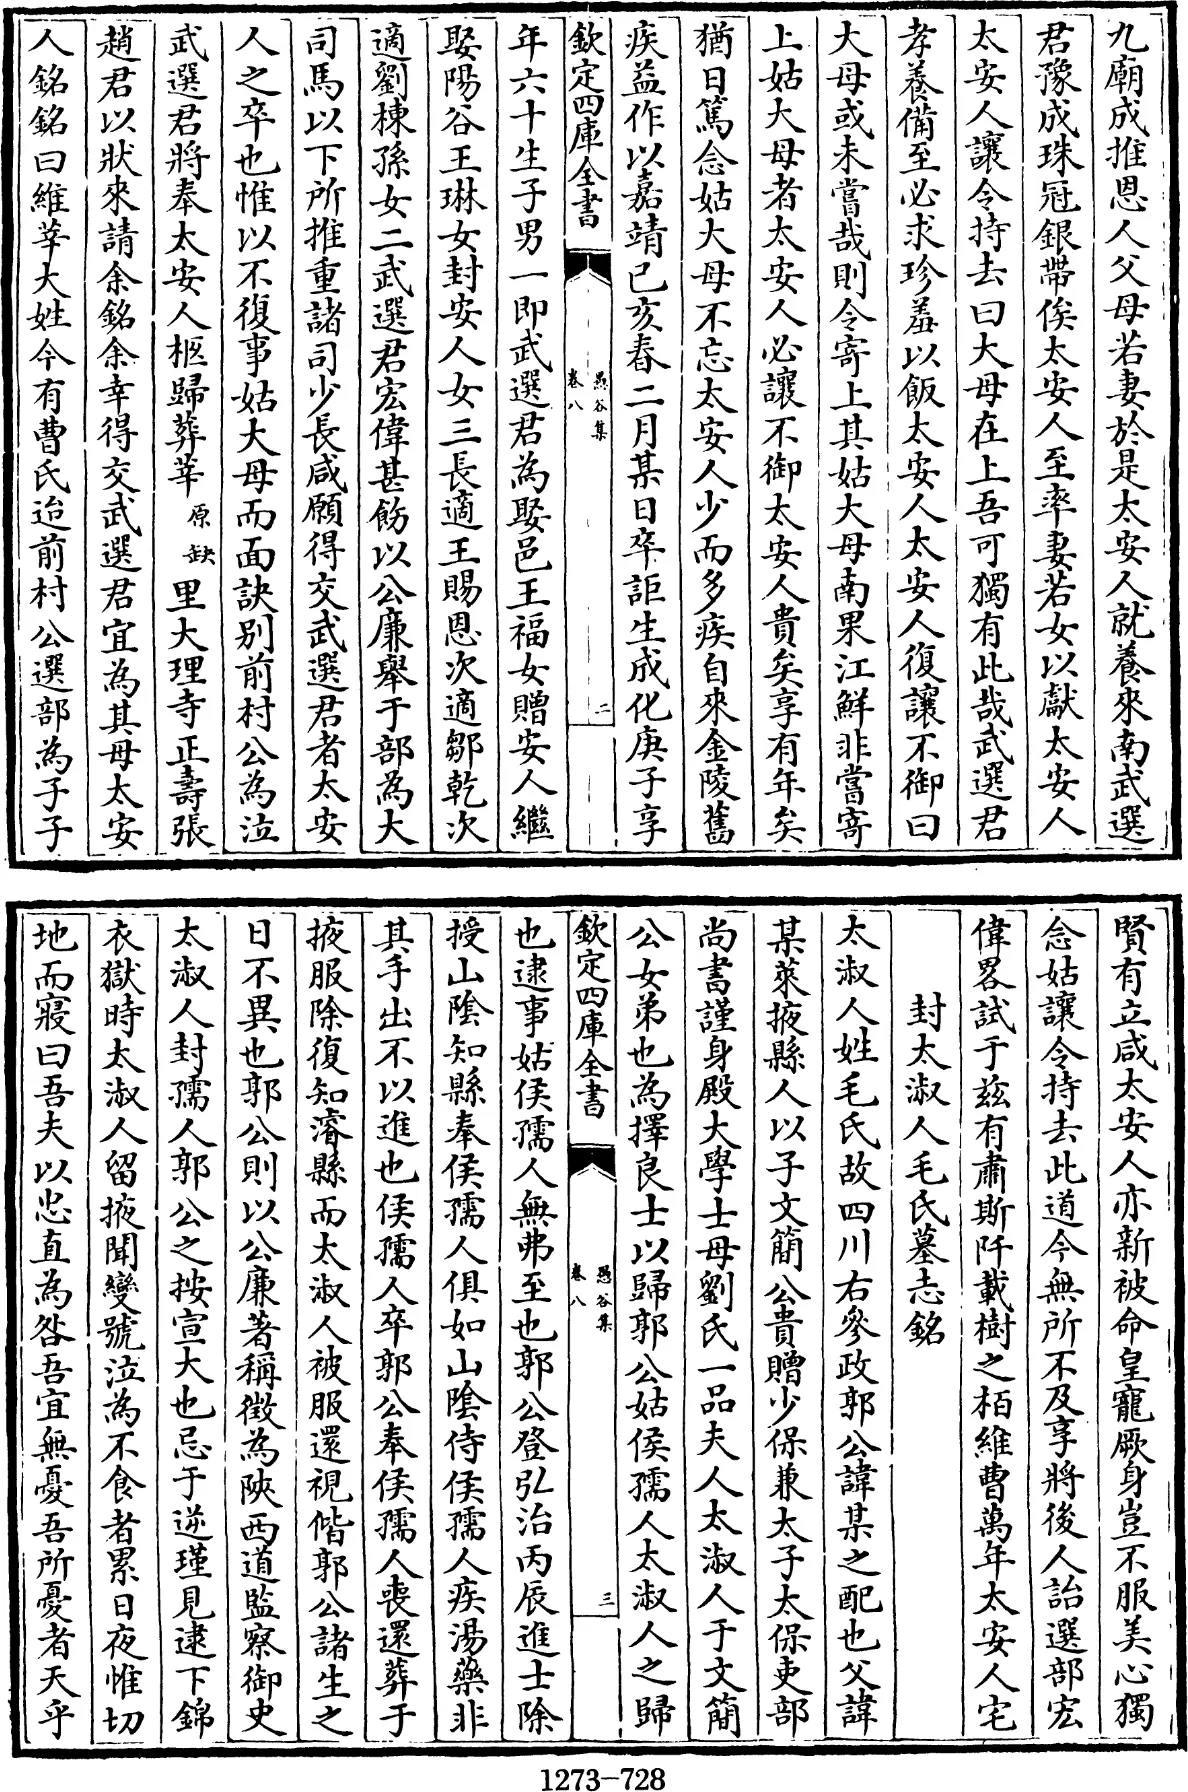 九廟成推恩人父母若妻於是太安人就養來南武選
君豫成珠冠銀帶俟太安人至率妻若女以獻太安人
太安人讓令持去曰大母在上吾可獨有此哉武選君
孝養備至必求珍羞以飯太安人太安人復讓不御曰
大母或未嘗哉則令寄上其姑大母南果江鮮非嘗寄
上姑大母者太安人必讓不御太安人貴矣享有年矣
猶日篤念姑大母不忘太安人少而多疾自來金陵舊
疾益作以嘉靖己亥春二月某日卒詎生成化庚子享
欽定四庫全書
愚谷集
卷八
二
年六十生子男一即武選君為娶邑王福女贈安人繼
娶陽谷王琳女封安人女三長適王賜恩次適鄒乾次
適劉棟孫女二武選君宏偉甚飭以公廉舉于部為大
司馬以下所推重諸司少長咸願得交武選君者太安
人之卒也惟以不復事姑大母而面訣別前村公為泣
武選君將奉太安人柩歸葬莘原缺里大理寺正壽張
趙君以狀來請余銘余幸得交武選君宜為其母太安
人銘銘曰維莘大姓今有曹氏迨前村公選部為子子
賢有立咸太安人亦新被命皇寵厥身豈不服美心獨
念姑讓令持去此道今無所不及享將後人詒選部宏
偉畧試于茲有肅斯阡載樹之栢維曹萬年太安人宅
封太淑人毛氏墓志銘
太淑人姓毛氏故四川右參政郭公諱某之配也父諱
某萊掖縣人以子文簡公貴贈少保兼太子太保吏部
尚書謹身殿大學士母劉氏一品夫人太淑人于文簡
公女弟也為擇良士以歸郭公姑侯孺人太淑人之歸
欽定四庫全書
愚谷集
卷八
三
也逮事姑侯孺人無弗至也郭公登弘治丙辰進士除
授山陰知縣奉侯孺人俱如山陰侍侯孺人疾湯藥非
其手出不以進也侯孺人卒郭公奉侯孺人喪還葬于
掖服除復知濬縣而太淑人被服還視偕郭公諸生之
日不異也郭公則以公廉著稱徵為陝西道監察御史
太淑人封孺人郭公之按宣大也忌于逆瑾見逮下錦
衣獄時太淑人留掖聞變號泣為不食者累日夜惟切
地而寢曰吾夫以忠直為咎吾宜無憂吾所憂者天乎
1273-728